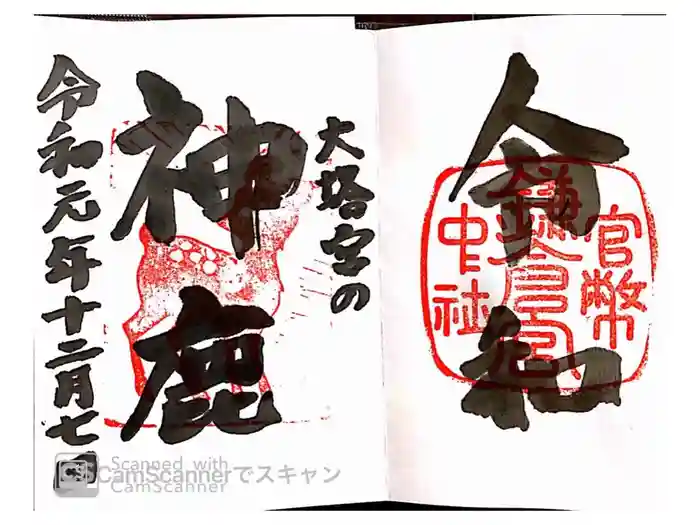 令和
官幣
鎌倉宮
中社
大塔宮の
神鹿
令和元年十二月七日
Scanned with
CamScanner
CSCamScannerでスキャン